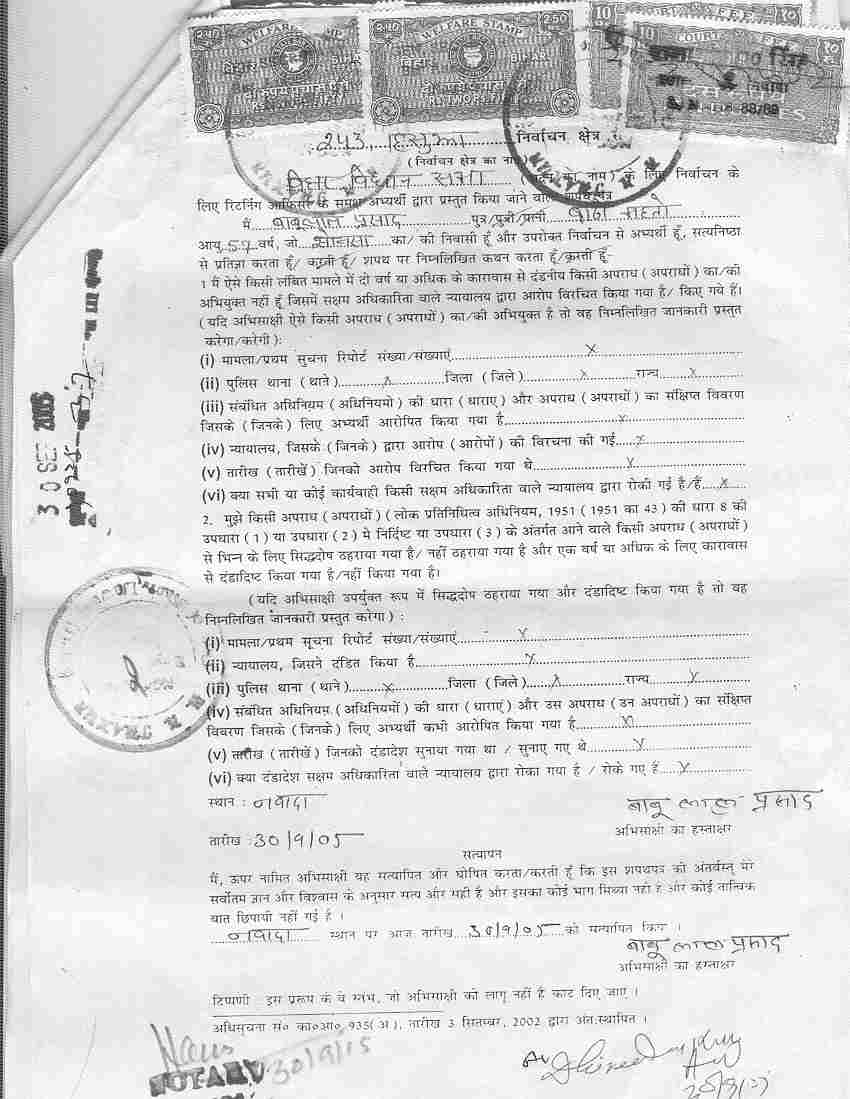 WELFARE STAMP WELFARE STAMP COURT FEE
2.50 बिहार BIHAR 2.50 बिहार BIHAR 10 10 रु०
दो रुपये पचास पैसे दो रुपये पचास पैसे
RS.TWO FIFTY RS.TWO FIFTY
243, हिसुआ निर्वाचन क्षेत्र
(निर्वाचन क्षेत्र का नाम)
विधान सभा के लिए निर्वाचन के
लिए रिटर्निंग आफिसर के समक्ष अभ्यर्थी द्वारा प्रस्तुत किया जाने वाला शपथ पत्र
मैं बाबूलाल प्रसाद पुत्र/पुत्री/पत्नी महतो
आयु 57 वर्ष, जो का/ की निवासी हूँ और उपरोक्त निर्वाचन से अभ्यर्थी हूँ, सत्यनिष्ठा
से प्रतिज्ञा करता हूँ/ करती हूँ/ शपथ पर निम्नलिखित कथन करता हूँ/करती हूँ-
1 मैं ऐसे किसी लंबित मामले में दो वर्ष या अधिक के कारावास से दंडनीय किसी अपराध (अपराधों) का/की
अभियुक्त नहीं हूँ जिसमें सक्षम अधिकारिता वाले न्यायालय द्वारा आरोप विरचित किया गया है/ किए गये हैं।
(यदि अभिसाक्षी ऐसे किसी अपराध (अपराधों) का/की अभियुक्त है तो वह निम्नलिखित जानकारी प्रस्तुत
करेगा/करेगी):
(i) मामला/प्रथम सुचना रिपोर्ट संख्या/संख्याएं x
(ii) पुलिस थाना (थाने) x जिला (जिले) x राज्य x
(iii) संबंधित अधिनियम (अधिनियमो) की धारा (धाराए) और अपराध (अपराधों) का संक्षिप्त विवरण
जिसके (जिनके) लिए अभ्यर्थी आरोपित किया गया है x
(iv) न्यायालय, जिसके (जिनके) द्वारा आरोप (आरोपों) की विरचना की गई x
(v) तारीख (तारीखें) जिनको आरोप विरचित किया गया थे x
(vi) क्या सभी या कोई कार्यवाही किसी सक्षम अधिकारिता वाले न्यायालय द्वारा रोकी गई है/हैं x
2. मुझे किसी अपराध (अपराधों) (लोक प्रतिनिधित्व अधिनियम, 1951 (1951 का 43) की धारा 8 की
उपधारा (1) या उपधारा (2) मे निर्दिष्ट या उपधारा (3) के अंतर्गत आने वाले किसी अपराध (अपराधों)
से भिन्न के लिए सिद्धदोष ठहराया गया है/ नहीं ठहराया गया है और एक वर्ष या अधिक के लिए कारावास
से दंडादिष्ट किया गया है/नहीं किया गया है।
(यदि अभिसाक्षी उपर्युक्त रूप में सिद्धदोष ठहराया गया और दंडादिष्ट किया गया है तो वह
निम्नलिखित जानकारी प्रस्तुत करेगा) :
(i) मामला/प्रथम सूचना रिपोर्ट संख्या/संख्याएं x
(ii) न्यायालय, जिसने दंडित किया है x
(iii) पुलिस थाना (थाने) x जिला (जिले) x राज्य x
(iv) संबंधित अधिनियम (अधिनियमों) की धारा (धाराएं) और उस अपराध (उन अपराधों) का संक्षिप्त
विवरण जिसके (जिनके) लिए अभ्यर्थी कभी आरोपित किया गया है
(v) तारीख (तारीखें) जिनको दंडादेश सुनाया गया था / सुनाए गए थे x
(vi) क्या दंडादेश सक्षम अधिकारिता वाले न्यायालय द्वारा रोका गया है / रोके गए है x
स्थान : नवादा
बाबू लाल प्रसाद
अभिसाक्षी का हस्ताक्षर
तारीख : 30/9/05
सत्यापन
मैं, ऊपर नामित अभिसाक्षी यह सत्यापित और घोषित करता/करती हूँ कि इस शपथपत्र की अंतर्वस्तु मेरे
सर्वोतम ज्ञान और विश्वास के अनुसार सत्य और सही है और इसका कोई भाग मिथ्या नहीं है और कोई तात्विक
बात छिपायी नहीं गई है ।
नवादा स्थान पर आज तारीख 30/9/05 को सत्यापित किया ।
बाबू लाल प्रसाद
अभिसाक्षी का हस्ताक्षर
टिप्पणी : इस प्ररूप के वे स्तंभ, जो अभिसाक्षी को लागू नहीं है काट दिए जाए ।
अधिसूचना सं० का०आ०, 935(अ), तारीख 3 सितम्बर, 2002 द्वारा अंतःस्थापित ।
NOTARY
30 SEP 2005